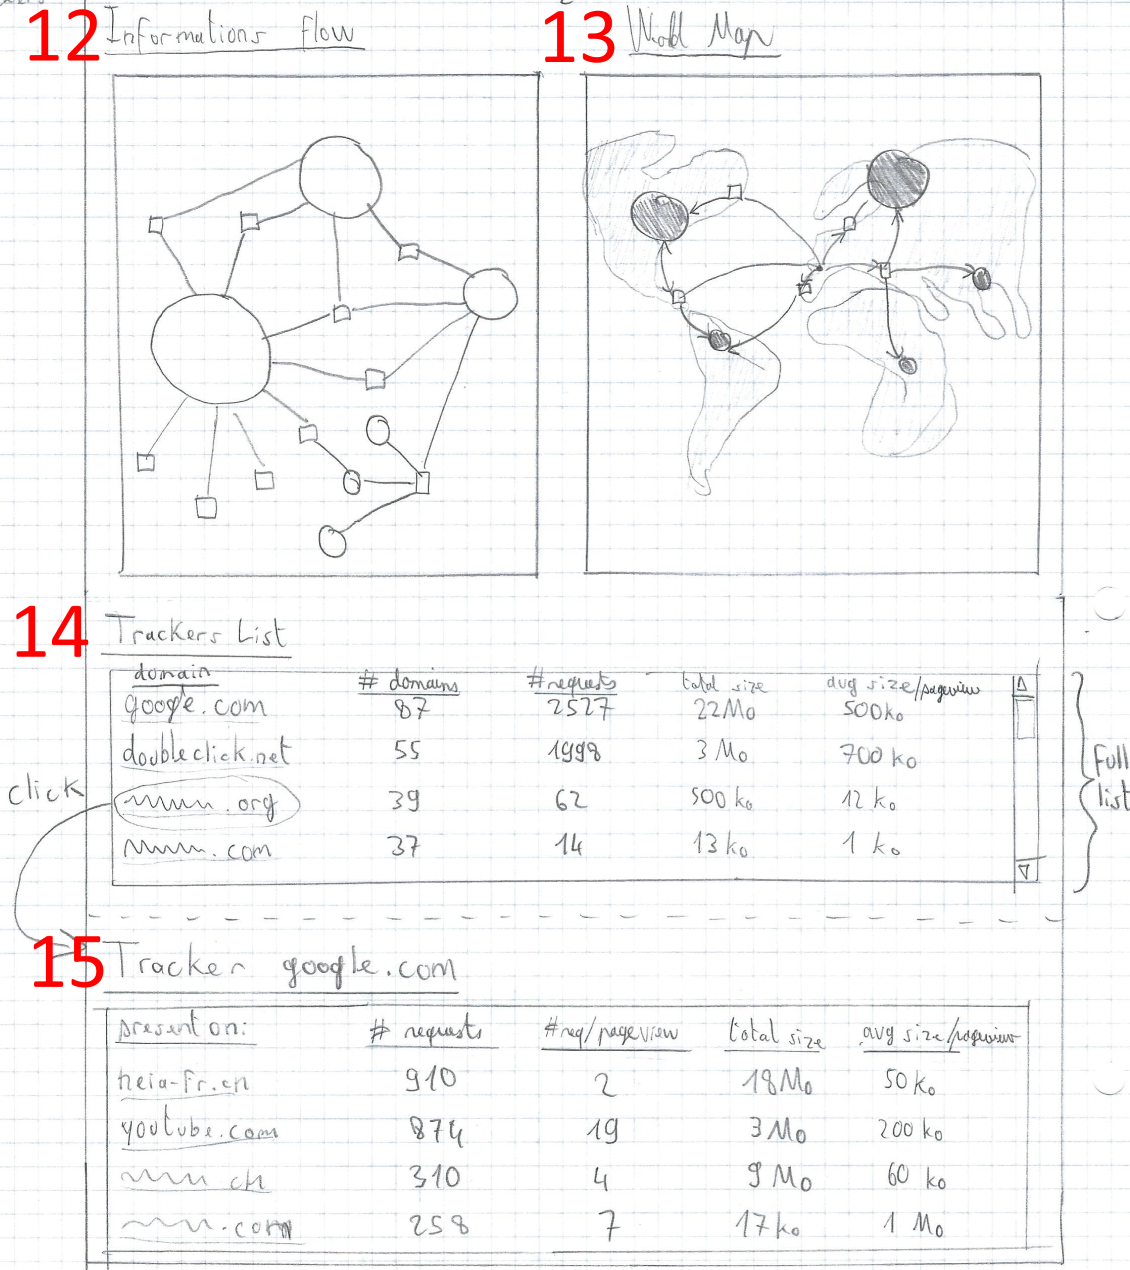 12 Informations flow
13 World Map
14 Trackers List
domain # domains #requests total size avg size/pageview
google.com 87 2527 22Mo 500ko
doubleclick.net 55 1998 3 Mo 700 ko
.org 39 62 500 ko 12 ko
.com 37 14 13 ko 1 ko
click
Full
list
15 Tracker google.com
present on: # requests #req/pageview total size avg size/pageview
heia-fr.ch 910 2 18 Mo 50 ko
youtube.com 874 19 3 Mo 200 ko
ch 310 4 9 Mo 60 ko
.com 258 7 17 ko 1 Mo